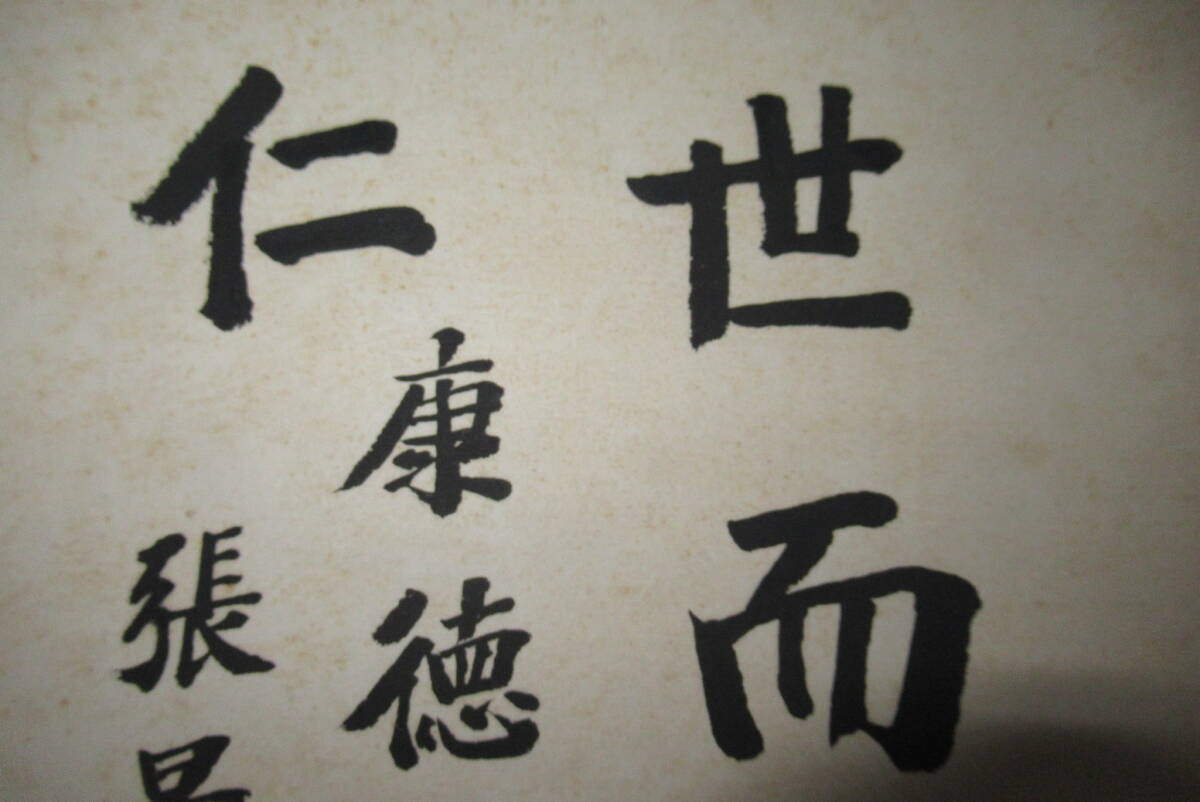 世而
仁
康德
張